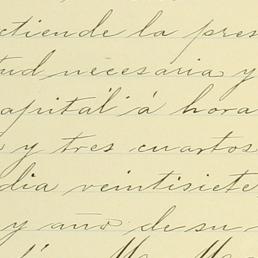 ctiende la pres
tud necesaria y
apital á hora
y tres cuartos
dia veintisiete
y año de su